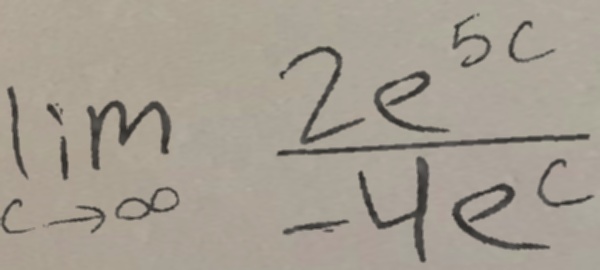 lim c→∞ 2e^{5c} / -4e^{c}